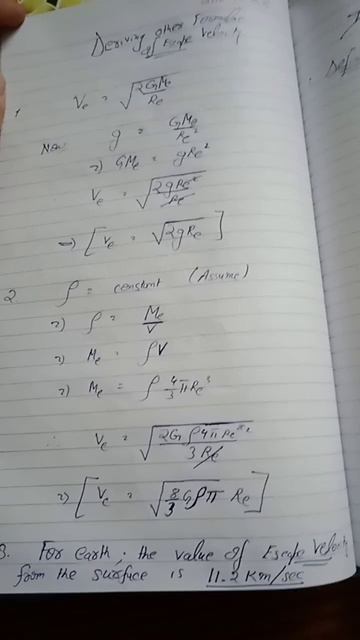 Deriving other Formulae
of Escape Velocity
1. Ve = √(2GMe/Re)
Now g = GMe/Re²
=> GMe = gRe²
Ve = √(2gRe²/Re)
=> [Ve = √2gRe]
2 ρ = constant (Assume)
=> ρ = Me/V
=> Me = ρV
=> Me = ρ 4/3 πRe³
∴ Ve = √(2G ρ4πRe³ ²/3Re)
=> [Ve = √(8/3 Gρπ) Re]
3. For earth, the value of Escape Velocity
from the surface is 11.2 Km/sec
Def